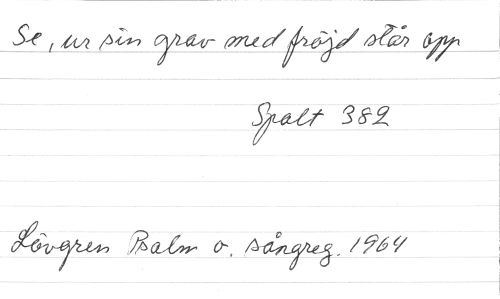 Se, ur sin grav med fröjd står opp
Spalt 382
Lövgren Psalm o. sångreg. 1964